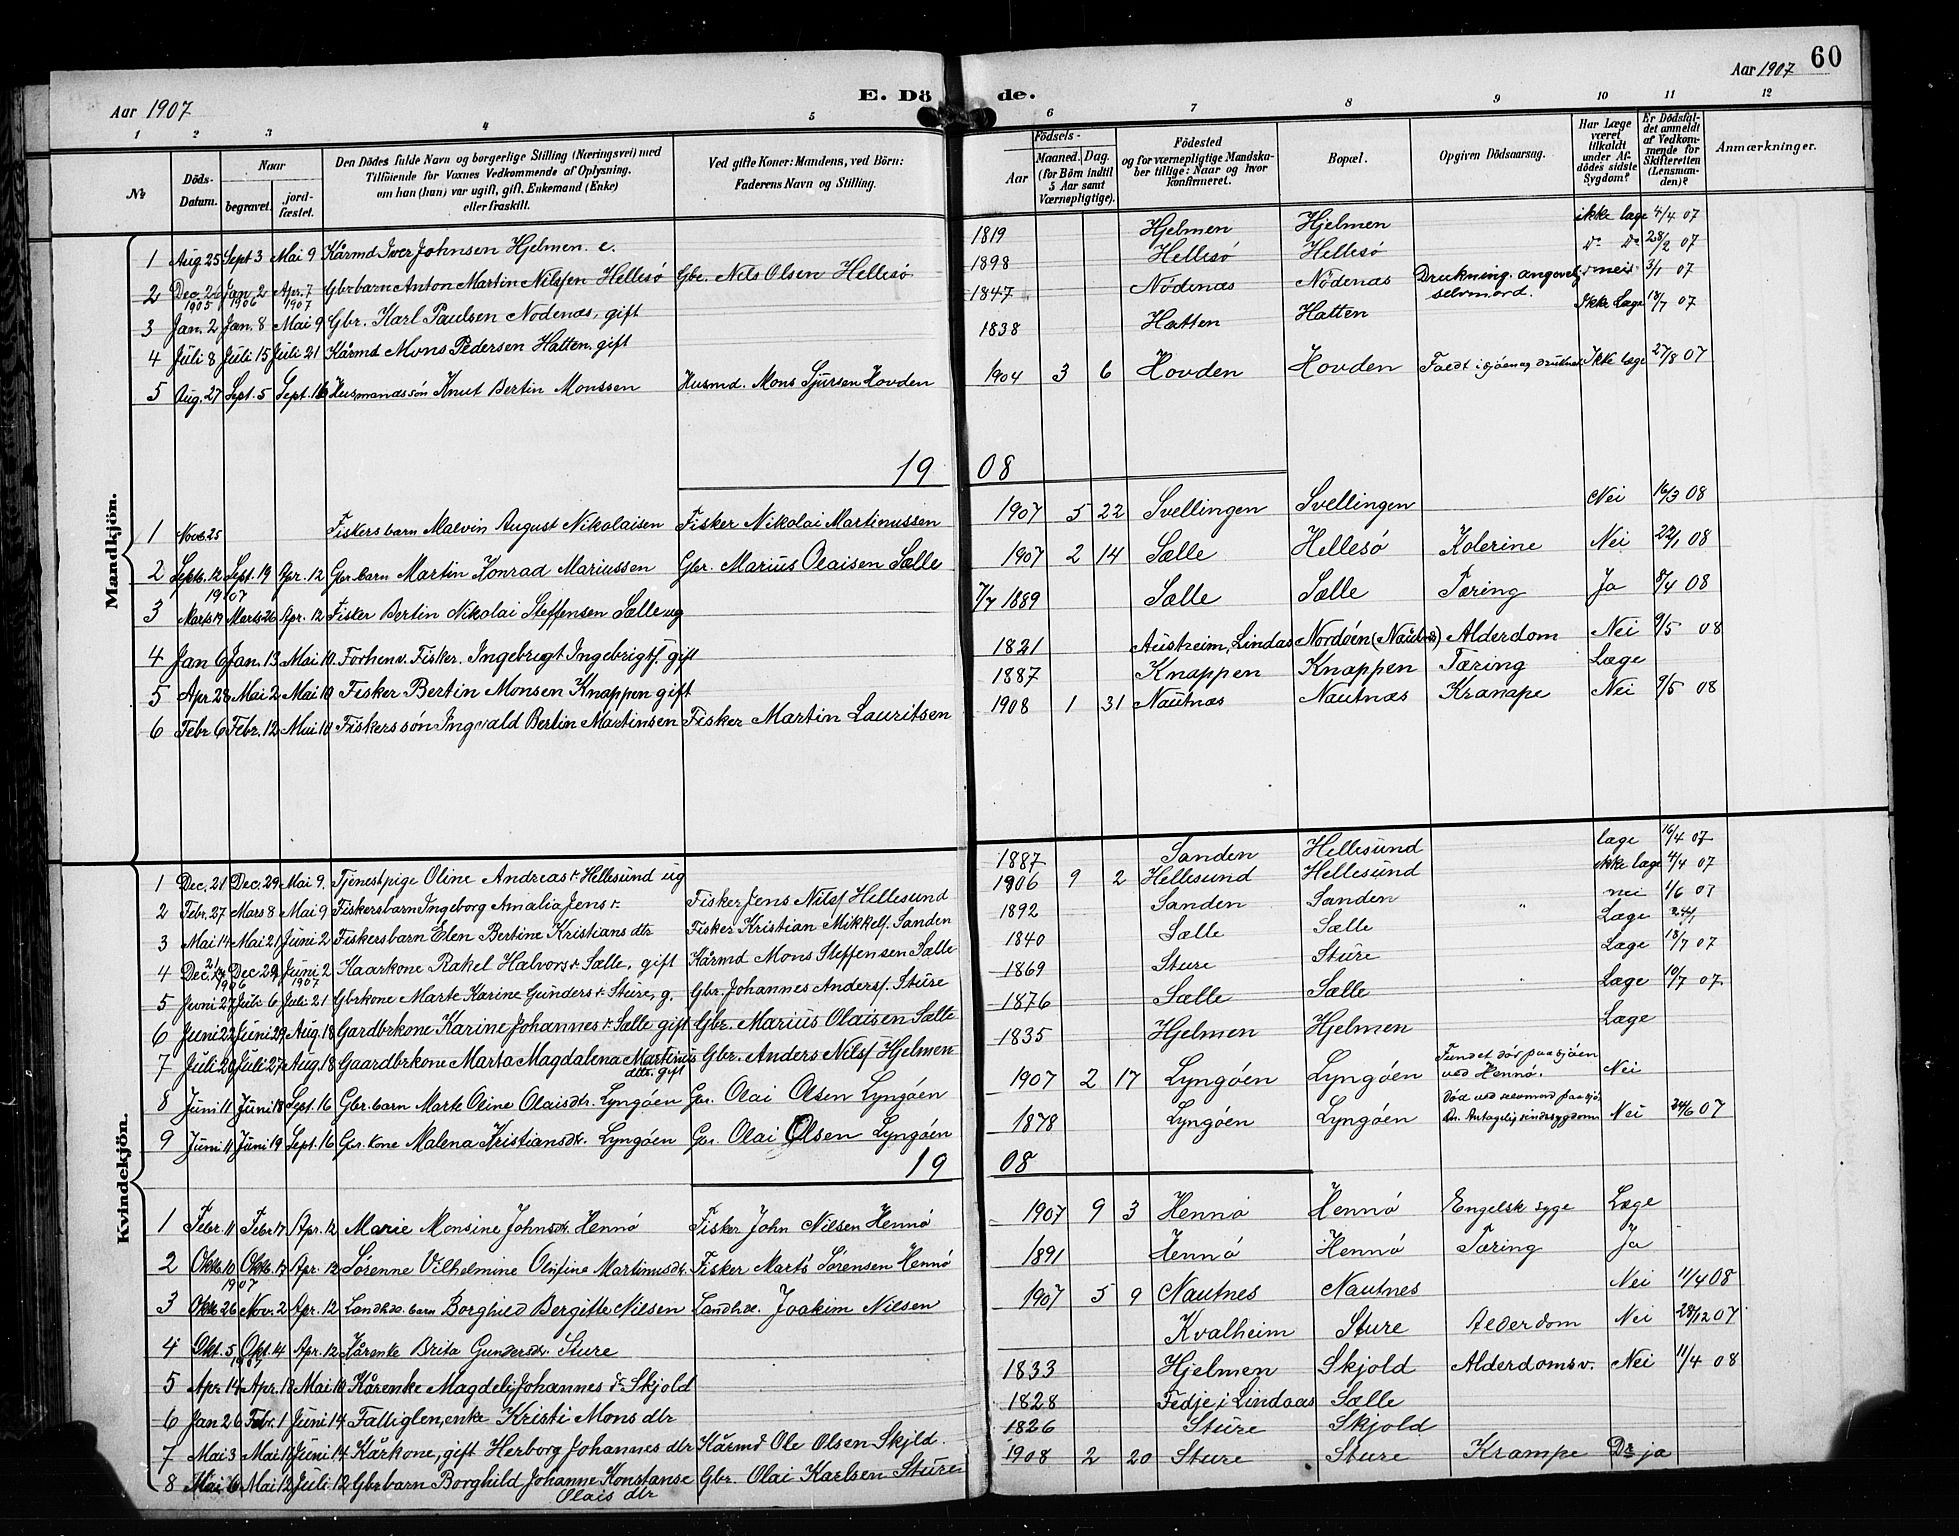 Aar 1907
E. Dö de.
Aar 1907 60
1 2 3 4 5 6 7 8 9 10 11 12
№
Döds-Datum.
Naar
begravet.
jord-fæstet.
Den Dödes fulde Navn og borgerlige Stilling (Næringsvei) med
Tilföiende for Voxnes Vedkommende af Oplysning.
om han (hun) var ugift, gift, Enkemand (Enke)
eller fraskilt.
Ved gifte Koner: Mandens, ved Börn:
Faderens Navn og Stilling.
Födsels-
Aar
Maaned. Dag.
(for Börn indtil
5 Aar samt
Værnepligtige).
Födested
og for værnepligtige Mandska-
ber tillige: Naar og hvor
konfirmeret.
Bopæl.
Opgiven Dödsaarsag.
Har Læge
været
tilkaldt
under Af-
dödes sidste
Sygdom?
Er Dödsfal-
det anmeldt
af Vedkom-
mende for
Skifteretten
(Lensman-
den)?
Anmærkninger.
Mandkjön.
1 Aug 25 Sept 3 Mai 9 Kårmd Iver Johnsen Hjelmen. e. 1819 Hjelmen Hjelmen ikke læge 4/4 07
2 Dec. 26 1905 Jan. 2 1906 Apr. 7 1907 Gbrbarn Anton Martin Nilssen Hellesø Gbr. Nils Olsen Hellesø 1898 Hellesø Hellesø do do 28/2 07
3 Jan. 2 Jan. 8 Mai 9 Gbr. Karl Paulsen Nodenæs, gift 1847 Nödenæs Nödenæs Drukning. angevelig selvmord. nei 3/1 07
4 Juli 8 Juli 15 Juli 21 Kårmd Mons Pedersen Hatten. gift 1838 Hatten Hatten Ikke Læge 18/7 07
5 Aug. 27 Sept. 5 Sept. 16 Husmandssön Knut Bertin Monssen Husmd. Mons Sjursen Hovden 1904 3 6 Hovden Hovden Faldt i sjöen og druknet Ikke læge 27/8 07
19 08
1 Nov. 25 Fiskersbarn Malvin August Nikolaisen Fisker Nikolai Martinussen 1907 5 22 Svellingen Svellingen Nei 16/3 08
2 Septb. 12 Sept. 19 1907 Apr. 12 Gbr. barn Martin Konrad Mariussen Gbr. Marius Olaisen Sælle 1907 2 14 Sælle Hellesø Kolerine Nei 22/1 08
3 Marts 19 Marts 26 Apr. 12 Fisker Bertin Nikolai Steffensen Sælle ug 7/7 1889 Sælle Sælle Tæring Ja 8/4 08
4 Jan 6 Jan. 13 Mai 10 Forhenv. Fisker. Ingebrigt Ingebrigts. gift 1821 Austreim, Lindaas Nordöen (Nautnes) Alderdom Nei 9/5 08
5 Apr. 28 Mai 2 Mai 10 Fisker Bertin Monsen Knappen gift 1887 Knappen Knappen Tæring Læge
6 Febr. 6 Febr. 12 Mai 10 Fiskerssön Ingvald Bertin Martinsen Fisker Martin Lauritsen 1908 1 31 Nautnæs Nautnæs Kranape Nei 9/5 08
Kvindekjön.
1 Dec. 21 Dec. 29 Mai 9. Tjenestpige Oline Andreas dr. Hellesund ug 1887 Sanden Hellesund læge 16/4 07
2 Febr. 27 Mars 8 Mai 9 Fiskersbarn Ingeborg Amalia Jens dr. Fisker Jens Nilss Hellesund 1906 9 2 Hellesund Hellesund ikke læge 4/4 07
3 Mai 14 Mai 21 Juni 2 Fiskersbarn Elen Bertine Kristians dtr Fisker Kristian Mikkels. Sanden 1892 Sanden Sanden " nei 1/6 07
4 Dec. 21 1906 Dec. 29 Juni 2 1907 Kaarkone Rakel Halvors dr. Sælle, gift Kårmd Mons Steffensen Sælle 1840 Sælle Sælle Læge
5 Juni 27 Juli 6 Juli 21 Gbrkone Marte Karine Gunders dr Sture, g. Gbr. Johannes Anders. Sture 1869 Sture Sture Læge 18/7 07
6 Juni 22 Juni 29 Aug. 18 Gardbrkone Karine Johannes dr. Sælle gift Gbr. Marius Olaisen Sælle 1876 Sælle Sælle Læge 10/7 07
7 Juli 20 Juli 27 Aug. 18 Gaardbrkone Marta Magdalena Martinus dttr. gift Gbr. Anders Nilss Hjelmen 1835 Hjelmen Hjelmen Læge
8 Juni 11 Juni 18 Sept. 16 Gbr. barn Marte Oline Olaisdtr. Lyngöen Gbr. Olai Olsen Lyngöen 1907 2 17 Lyngöen Lyngöen Fundet död paa sjöen ved Hennö. Nei
9 Juni 11 Juni 19 Sept. 16 Gbr. kone Malena Kristiansdtr. Lyngöen Gbr. Olai Olsen Lyngöen 1878 Lyngöen Lyngöen död ved selvmord paa sjö. Antagelig sindssygdom Nei 24/6 07
19 08
1 Febr. 11 Febr. 17 Apr. 12 Marie Monsine Johnsdtr. Hennö Fisker John Nilsen Hennö 1907 9 3 Hennö Hennö Engelsk syge Læge
2 Oktb. 10 1907 Oktb. 17 Apr. 12 Sörenne Vilhelmine Olufine Martinusdtr. Fisker Marts Sörensen Hennö 1891 Hennö Hennö Tæring Ja
3 Oktb. 26 Nov. 2 Apr. 12 Landhdl. barn Borghild Bergitte Nilsen Landhdl. Joakim Nilsen 1907 5 9 Nautnes Nautnes Nei 11/4 08
4 Okt. 5 1907 Okt. 14 Apr. 12 Kårenke Brita Gundersdtr. Sture Kvalheim Sture Alderdom Nei 28/12 07
5 Apr 14 Apr. 18 Mai 10 Kårenke Magdeli Johannes dr Skjold 1833 Hjelmen Skjold Alderdomsv. Nei 11/4 08
6 Jan 26 Febr. 1 Juni 14 Fattiglem, enke Kristi Mons dtr 1828 Fedje i Lindaas Sælle
7 Mai 3 Mai 11 Juni 14 Kårkone, gift Herborg Johannes dtr Kårmd Ole Olsen Skjld. 1826 Sture Skjold
8 Mai 6 Mai 12 Juli. 12 Gbrbarn Borghild Johanne Konstanse Olais dtr Gbr. Olai Karlsen Sture 1908 2 20 Sture Sture Krampe Dr. ja